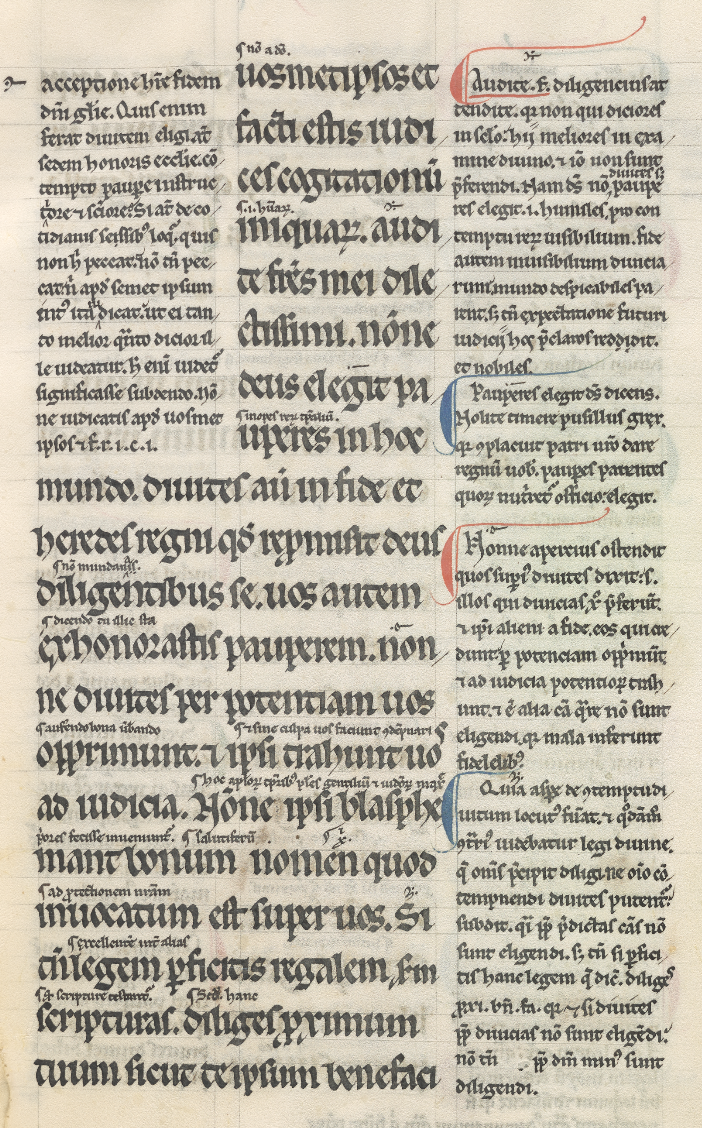 acceptione hr̄e fidem
dn̄i gl̄ie. Quis enim
ferat diuitem eligi at̄
sedem honoris eccl̄ie. cō
tempto paupe instruc
tiore ⁊ sc̄iore? Si at̄ de co
tidianis
non h̄ peccat? nō tn̄ pec
cat̄ apd̄ semet ipsum
int⁹ ita dicat. ut ei tan
to melior qn̄to dicior il
le uideatur. h̄ enī uidet᷑
significasse subdendo. Nō
ne iudicatis apd̄ uosmet
ipsos ⁊ f. r. i. c. i.
¶ nō a dō.
uosmetipsos et
facti estis iudi
ces cogitationū
¶ .i. hūar.
iniquaꝝ. audi
te frēs mei dile
ctissimi. nōne
deus elegit pa
¶ inopes reꝝ
uperes in hoc
mundo. diuites aū in fide et
heredes regni qd̄ repmisit deus
¶ nō mundanis.
diligentibus se. uos autem
¶ dicendo tu illic sta
exhonorastis pauperem. non
ne diuites per potentiam uos
¶ auferendo bona ūbando ¶ ⁊ sine culpa uos faciunt
opprimunt. ⁊ ipsi trahunt uo
ad iudicia. Nōne ipsi blasphe
fecisse inueniunt᷑. ¶ salutiferū
mant bonum nomen quod
¶ ad ꝓtectionem urām
inuocatum est super uos. Si
¶ excellentē int̄ alias
tn̄ legem ꝑficitis regalem, scm̄
scripture hanc
scripturas. diliges ꝓximum
tuum sicut te ipsum benefaci
Audite. f. diligenciusat
tendite. qr non qui diciores
in sclo. hii meliores in exa
mine diuino. ⁊ iō non sunt
p̄ferendi. Nam ds̄ nō diuites s; paupe
res elegit .i. humiles. pro con
temptu reꝝ uisibilium. fide
autem inuisibilium diuicia
rum. mundo despicabiles pa
rent. s; tn̄ expectatione futuri
iudicii hos p̄claros reddidit.
et nobiles.
Pauperes elegit ds̄ dicens.
Nolite timere pusillus grex.
qr ꝯplacuit patri uro dare
regnū uob. paupes parentes
quoꝝ officio. elegit.
Nonne apercius ostendit
quos supi⁹ diuites dixit. s.
illos qui diuicias xp̄o p̄ferūt.
⁊ ipi alieni a fide. eos qui cre
dunt p potenciam opp̄mūt
⁊ ad iudicia potencioꝝ trah
unt. ⁊ ē alia cā qre nō sunt
eligendi. qr mala inferunt
fidelib⁹.
Quia aspe de ꝯtemptu di
uitum locut⁹ fūat. ⁊ qd̄am
ꝯtri⁹ uidebatur legi diuine.
q̄ om̄s p̄cipit diligi. ne oīo cō
tempnendi diuites putent᷑.
subdit. qī ꝓp p̄dictas cās nō
sunt eligendi. s; tn̄ si ꝑfici
tis hanc legem q̄ dic̄. diliges
ꝓxi. bn̄. fa. qr ⁊ si diuites
ꝓp diuicias nō sunt eligēdi.
nō tn̄ ꝓp dm̄ min⁹ sunt
diligendi.